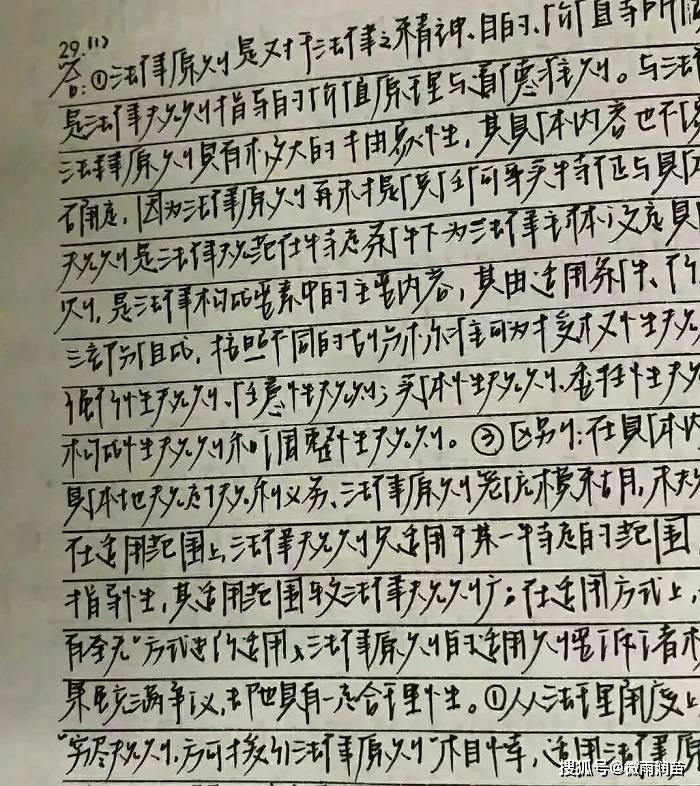 29.(1)
答:①法律原则是对于法律之精神、目的、价值等所
是法律规则指导的价值原理与道德准则。与法
法律原则具有极大的抽象性,其具体内容也不
确定,因为法律原则再未提供任何事实特征与具
规则是法律规范在特定条件下为法律主体设定具
则,是法律构成要素中的主要内容,其由适用条件、行
三部分组成,按照不同的划分标准可为授权性规
强行性规则、任意性规则;实体性规则、委任性规
构成性规则和调整性规则。③区别:在具体内
具体地规定权利义务、法律原则笼统模糊,未
在适用范围上,法律规则只适用于某一特定的范围
指导性,其适用范围较法律规则广;在适用方式上,
有全无"方式进行适用,法律原则的适用则
果虽充满争议,却也具有一定合理性。①从法理角度上
"穷尽规则,方可援引法律原则"相悖,适用法律原
搜狐号@微雨润苗